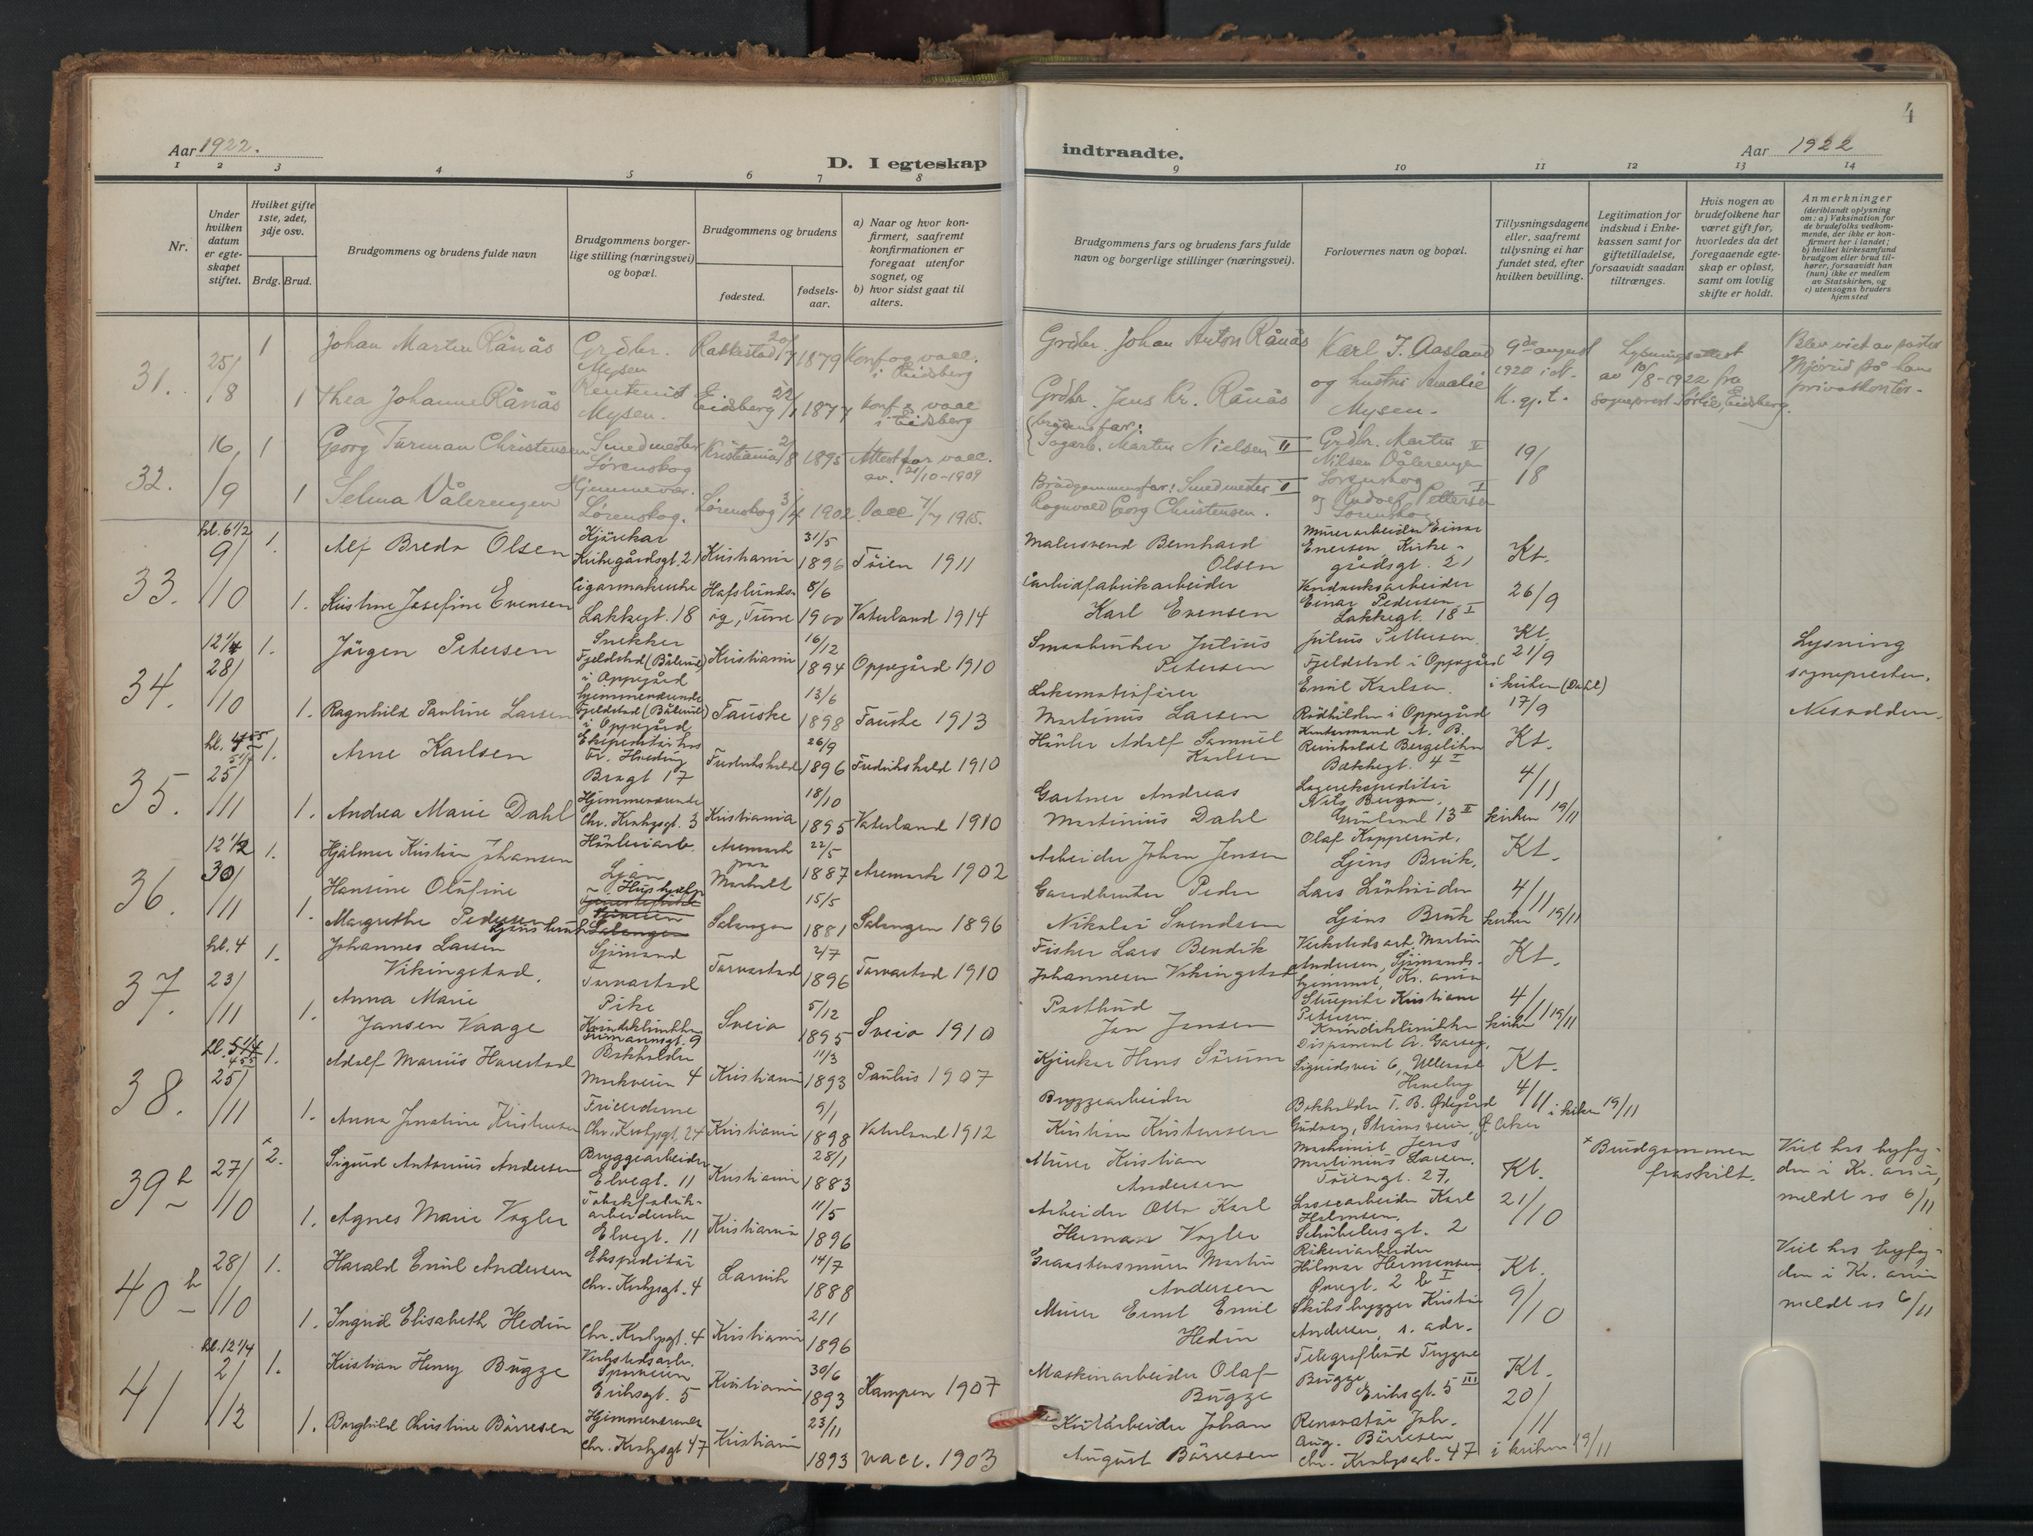 4
Aar 1922.
D. I egteskap
indtraadte.
Aar 1922
1 2 3 4 5 6 7 8 9 10 11 12 13 14
Nr.
Under hvilken datum er egteskapet stiftet.
Hvilket gifte 1ste, 2det, 3dje osv.
Brdg. Brud.
Brudgommens og brudens fulde navn
Brudgommens borgerlige stilling (næringsvei) og bopæl.
Brudgommens og brudens
fødested.
fødselsaar.
a) Naar og hvor konfirmert, saafremt konfirmationen er foregaat utenfor sognet, og
b) hvor sidst gaat til alters.
Brudgommens fars og brudens fars fulde navn og borgerlige stillinger (næringsvei).
Forlovernes navn og bopæl.
Tillysningsdagene eller, saafremt tillysning ei har fundet sted, efter hvilken bevilling.
Legitimation for indskud i Enkekassen samt for giftetilladelse, forsaavidt saadan tiltrænges.
Hvis nogen av brudefolkene har været gift før, hvorledes da det foregaaende egteskap er opløst, samt om lovlig skifte er holdt.
Anmerkninger
(deriblandt oplysning om: a) Vaksination for de brudefolks vedkommende, der ikke er konfirmert her i landet; b) hvilket kirkesamfund brudgom eller brud tilhører, forsaavidt han (hun) ikke er medlem av Statskirken, og c) utensogns bruders hjemsted
31. 25/8 1 Johan Martin Rånås Grdbr. Mysen Rakkestad 20/7 1879 Konf og vacc. i Eidsberg
Grdbr. Johan Anton Rånås Karl J. Aasland 9de august 1920 i N. K. gj. t.
Lysningsattest av 10/8-1922 fra sogneprest Sørlie, Eidsberg.
Blev viet av pastor Mjörud på hans privatkontor.
1 Thea Johanne Rånås Mysen. Eidsberg 22/1 1877 Konf & vacc i Eidsberg
Grdbr. Jens Kr. Rånås og hustru Amalie Mysen.
32. 16/9 1 Georg Turman Christensen Smedmester Lørenskog Kristiania 2/8 1895 Attest for vacc. av 21/10-1909
(brudens far: Martin Nielsen II Grdbr. Martin Nilsen Vålerengen Lørenskog 19/8
1 Selma Vålerengen Hjemmevær. Lørenskog. Lørenskog 3/4 1902. Vacc. 7/7 1915.
Brudgommens far: Smedmester Ragnvald Georg Christensen. og Rudolf Pettersen Lørenskog
33. kl. 6 1/2 9/10 1. Alf Bredo Olsen Kjørekar Kirkegårdsgt. 21 Kristiania 31/5 1896 Tøien 1911
Malersvend Bernhard Olsen Murerarbeider Einar Evensen, Kirkegårdsgt. 21 Kt.
1. Kristine Josefine Evensen Cigarmakerske Lakkegt. 18 Hafslundsøy, Tune 8/6 1900 Vaterland 1914
Carbidfabrikarbeider Karl Evensen Einar Pedersen Lakkegt. 18 I 26/9
34. 12 1/4 28/10 1. Jørgen Petersen Snekker Fjeldstad (Bålerud) i Oppegård Kristiania 16/12 1894 Oppegård 1910
Smaabruker Julius Petersen Julius Pettersen Fjeldstad i Oppegård Kt. 21/9
Lysning sognepresten, Nesodden.
1. Ragnhild Pauline Larsen Hjemmeværende Fjeldstad (Bålerud) i Oppegård Fauske 13/6 1898 Fauske 1913
Lokomotivfører Martinus Larsen Emil Karlsen. i Oppegård i kirken (Dahl) 17/9
35. 25/11 1. Arne Karlsen Ekspeditør hos Kristiania Bragt 17 Fredrikshald 26/9 1896 Fredrikshald 1910
Adolf Samuel Karlsen Kontormand Reinholdt Bakkegt. 4 II Kt.
1. Andrea Marie Dahl Hjemmeværende Chr. Krohgsgt. 3 Kristiania 18/10 1895 Vaterland 1910
Gartner Andreas Martinius Dahl Lagerekspeditør Nils Bergan, Grønland 13 II 4/11 kirken 19/11
36. 12 1/2 30/11 1. Hjalmar Kristian Johansen Ljan Aremark 22/5 1887 Aremark 1902
Arbeider Johan Jensen Olaf Kopperud, Ljans Bruk, Kt.
1. Hansine Olufine Margrethe Pedersen Salangen 15/5 1881 Salangen 1896
Gaardbruker Peder Nikolai Svendsen Ljans Bruk 4/11 kirken 19/11
37. kl. 4 23/11 1. Johannes Larsen Vikingstad. Sjømand Torvastad Torvastad 2/7 1896 Torvastad 1910
Fisker Lars Bendik Johannesen Vikingstad Verkstedsarb. Martin Andersen, Sjømandshjemmet, Kr.ania Kt.
1. Anna Marie Jansen Vaage Pike Kvindeklinikken Sveio 5/12 1895 Sveio 1910
Postbud Jan Jansen Stuepike Kristiane Petersen Kvindeklinikken 4/11 kirken 19/11
38. 25/11 1. Adolf Marius Harestad Bokholder Markveien 4 Kristiania 11/3 1893 Paulus 1907
Kjørekar Hans Sørum Disponent A. Sigurdsvei 6, Ullevaal Haveby Kt.
1. Anna Jonatine Kristensen Chr. Krohgsgt. 24 Kristiania 9/1 1898 Vaterland 1912
Bryggearbeider Kristian Kristensen Bokholder T. B. Ødegård 4/11 i kirken 19/11
39 b 27/10 2. Sigurd Antonius Andersen Bryggearbeider Elvegt. 11 Kristiania 28/1 1883
Murer Kristian Andersen Maskinist Jens Martinius Larsen, Tøiengt. 27, Kt.
x Brudgommen fraskilt.
Viet hos byfogden i Kr.ania, meldt os 6/11
1. Agnes Marie Vogler Tobakfabrikarbeiderske Elvegt. 11 Kristiania 11/5 1896
Arbeider Otto Karl Herman Vogler Lossearbeider Karl Halvorsen, Schübelersgt. 2 21/10
40 b 28/10 1. Harald Emil Andersen Ekspeditør Chr. Krohgsgt. 4 Larvik 14/7 1888
Graastensmurer Martin Andersen Hilmar Hermansen Øvregt. 2 b I Kt.
Viet hos byfogden i Kr.ania meldt os 6/11
1. Ingrid Elisabeth Hedin Chr. Krohgsgt. 4 Kristiania 2/1 1896
Murer Ernst Emil Hedin Skibsbygger Kristian Andersen, s. adr. 9/10
41 kl. 12 1/4 2/12 1. Kristian Henry Bugge Verkstedsarb. Sporveien Eriksgt. 5 Kristiania 30/6 1893 Kampen 1907
Maskinarbeider Olaf Bugge Telegrafbud Trygve Bugge Eriksgt. 5 III Kt.
1. Borghild Christine Børresen Hjemmeværende Chr. Krohgsgt 47 Kristiania 23/11 1893 vacc. 1903
Johan August Børresen Renovatør Joh. Aug. Børresen Chr. Krohgsgt. 47 20/11 i kirken 19/11